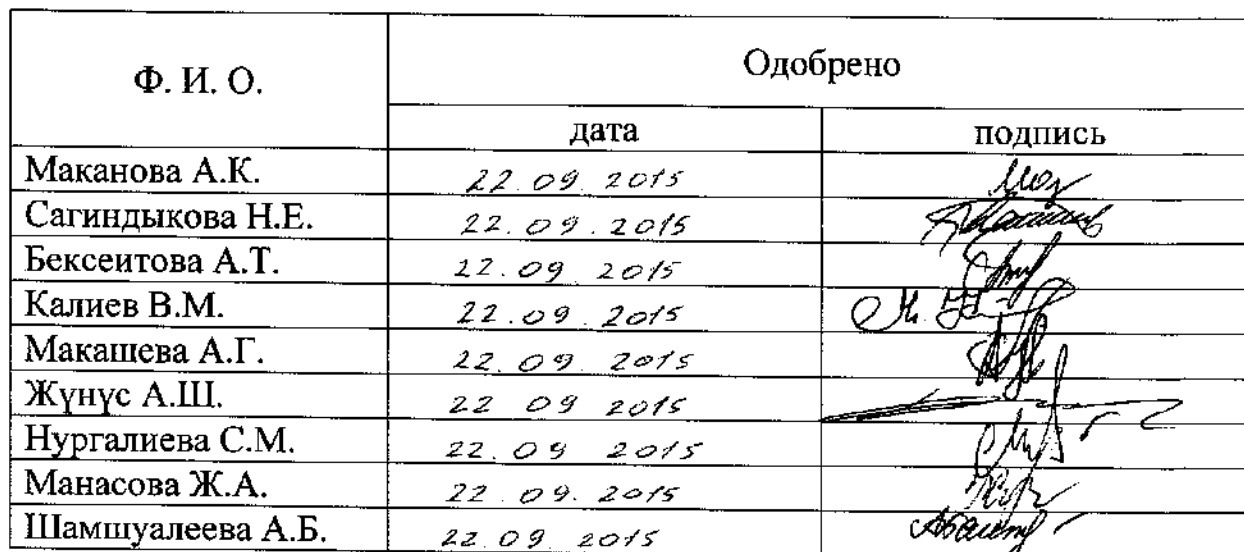 Ф. И. О. Одобрено
дата подпись
Маканова А.К. 22.09.2015
Сагиндыкова Н.Е. 22.09.2015
Бексеитова А.Т. 22.09.2015
Калиев В.М. 22.09.2015
Макашева А.Г. 22.09.2015
Жүнүс А.Ш. 22 09 2015
Нургалиева С.М. 22.09 2015
Манасова Ж.А. 22.09.2015
Шамшуалеева А.Б. 22.09.2015